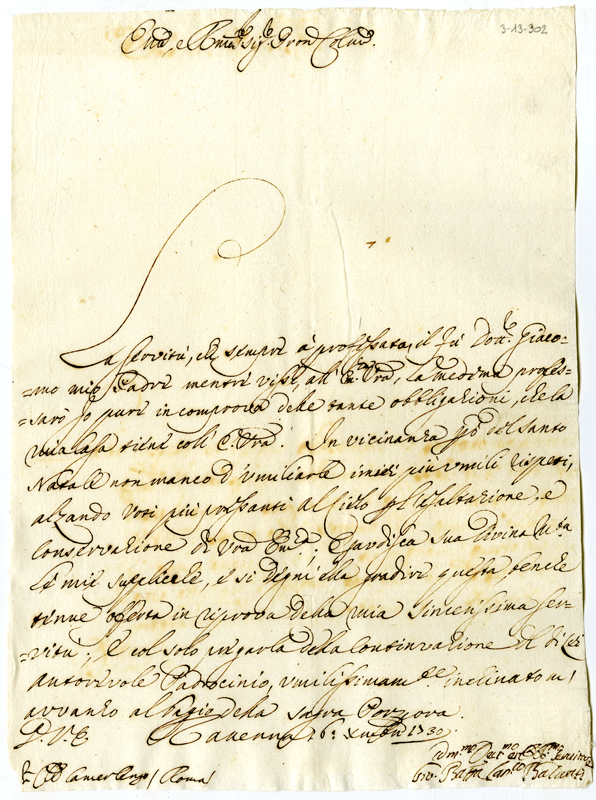 3-13-302
Em̃o, e Rmo Sig.r Sig.r Pron Colmo.
La Servitù, che sempre à professata, il fù Dott.r Giaco-
=mo mio Padre mentre visse all' E. Vra, la medema profes-
=sarò Io pure in comprova delle tante obbligazioni, che la
mia Casa tiene coll' E. Vra. In vicinanza però del Santo
Natale non manco d'umiliarle i miei più umili rispetti,
alzando voti più pressanti al Cielo per l'esaltazione, e
conservazione di Vra Em.za; Esaudisca Sua Divina M.tà
le mie suppliche, e si degni ella gradire questa, benche
tenue offerta in riprova della mia sincerissima ser-
=vitù; E col solo pregarla della continuazione del di Lei
autorevole Padrocinio, umilissimam.te inclinatomi,
avvanzo al bagio della Sacra Porpora.
D. V. E. Ravenna 16: Xmbre 1730
Em. Camerlengo / Roma /
Um.mo Dev.mo et Obb.mo Servitore
Gio. Batta